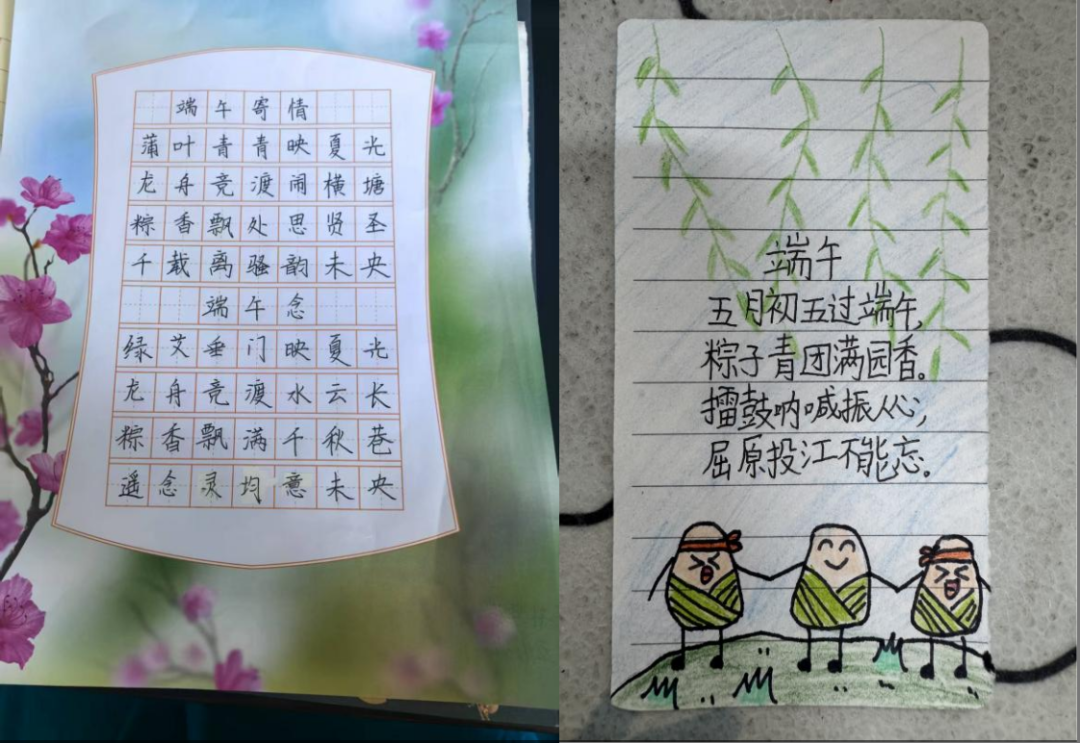 端午寄情
蒲叶青青映夏光
龙舟竞渡闹横塘
粽香飘处思贤圣
千载离骚韵未央
端午念
绿艾垂门映夏光
龙舟竞渡水云长
粽香飘满千秋巷
遥念灵均意未央
端午
五月初五过端午,
粽子青团满园香。
擂鼓呐喊振人心;
屈原投江不能忘。